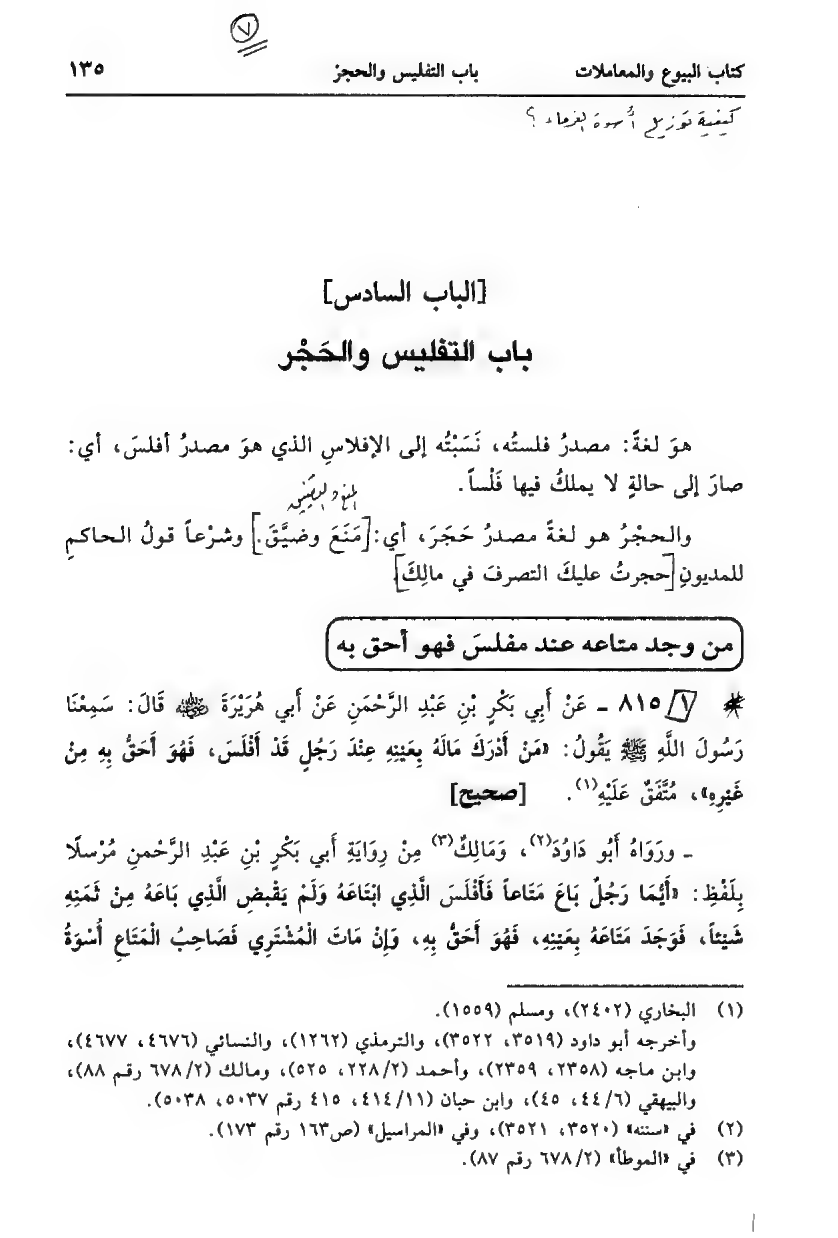 ٧
كتاب البيوع والمعاملات باب التفليس والحجز ١٣٥
كيفية توزيع أسوة الغرماء ؟
[الباب السادس]
باب التفليس والحَجْر
هوَ لغةً: مصدرُ فلستُه، نَسَبْتُه إلى الإفلاسِ الذي هوَ مصدرُ أفلسَ، أي:
صارَ إلى حالةٍ لا يملكُ فيها فَلْساً.
المنع والتضييق
والحجْرُ هو لغةً مصدرُ حَجَرَ، أي: [مَنَعَ وضيَّقَ.] وشرْعاً قولُ الحاكمِ
للمديونِ [حجرتُ عليكَ التصرفَ في مالِكَ]
من وجد متاعه عند مفلسَ فهو أحق به
١/٨١٥ ـ عَنْ أَبِي بَكْرِ بْنِ عَبْدِ الرَّحْمَنِ عَنْ أَبي هُرَيْرَةَ رضي الله عنه قَالَ: سَمِعْنَا
رَسُولَ اللَّهِ ﷺ يَقُولُ: «مَنْ أَدْرَكَ مَالَهُ بِعَيْنِهِ عِنْدَ رَجُلٍ قَدْ أَفْلَسَ، فَهُوَ أَحَقُّ بِهِ مِنْ
غَيْرِهِ»، مُتَّفَقٌ عَلَيْهِ(١). [صحيح]
ـ ورَوَاهُ أَبُو دَاوُدَ(٢)، وَمَالِكٌ(٣) مِنْ رِوَايَةِ أَبي بَكْرِ بْنِ عَبْدِ الرَّحْمنِ مُرْسلًا
بِلَفْظِ: «أَيُّمَا رَجُلٌ بَاعَ مَتَاعاً فَأَفْلَسَ الَّذِي ابْتَاعَهُ وَلَمْ يَقْبضِ الَّذِي بَاعَهُ مِنْ ثَمَنِهِ
شَيْئاً، فَوَجَدَ مَتَاعَهُ بِعَيْنِهِ، فَهُوَ أَحَقُّ بِهِ، وَإِنْ مَاتَ الْمُشْتَرِي فَصَاحِبُ الْمَتَاعِ أُسْوَةُ
(١) البخاري (٢٤٠٢)، ومسلم (١٥٥٩).
وأخرجه أبو داود (٣٥١٩، ٣٥٢٢)، والترمذي (١٢٦٢)، والنسائي (٤٦٧٦، ٤٦٧٧)،
وابن ماجه (٢٣٥٨، ٢٣٥٩)، وأحمد (٢/٢٢٨، ٥٢٥)، ومالك (٢/٦٧٨ رقم ٨٨)،
والبيهقي (٦/٤٤، ٤٥)، وابن حبان (١١/٤١٤، ٤١٥ رقم ٥٠٣٧، ٥٠٣٨).
(٢) في «سننه» (٣٥٢٠، ٣٥٢١)، وفي «المراسيل» (ص١٦٣ رقم ١٧٣).
(٣) في «الموطأ» (٢/٦٧٨ رقم ٨٧).